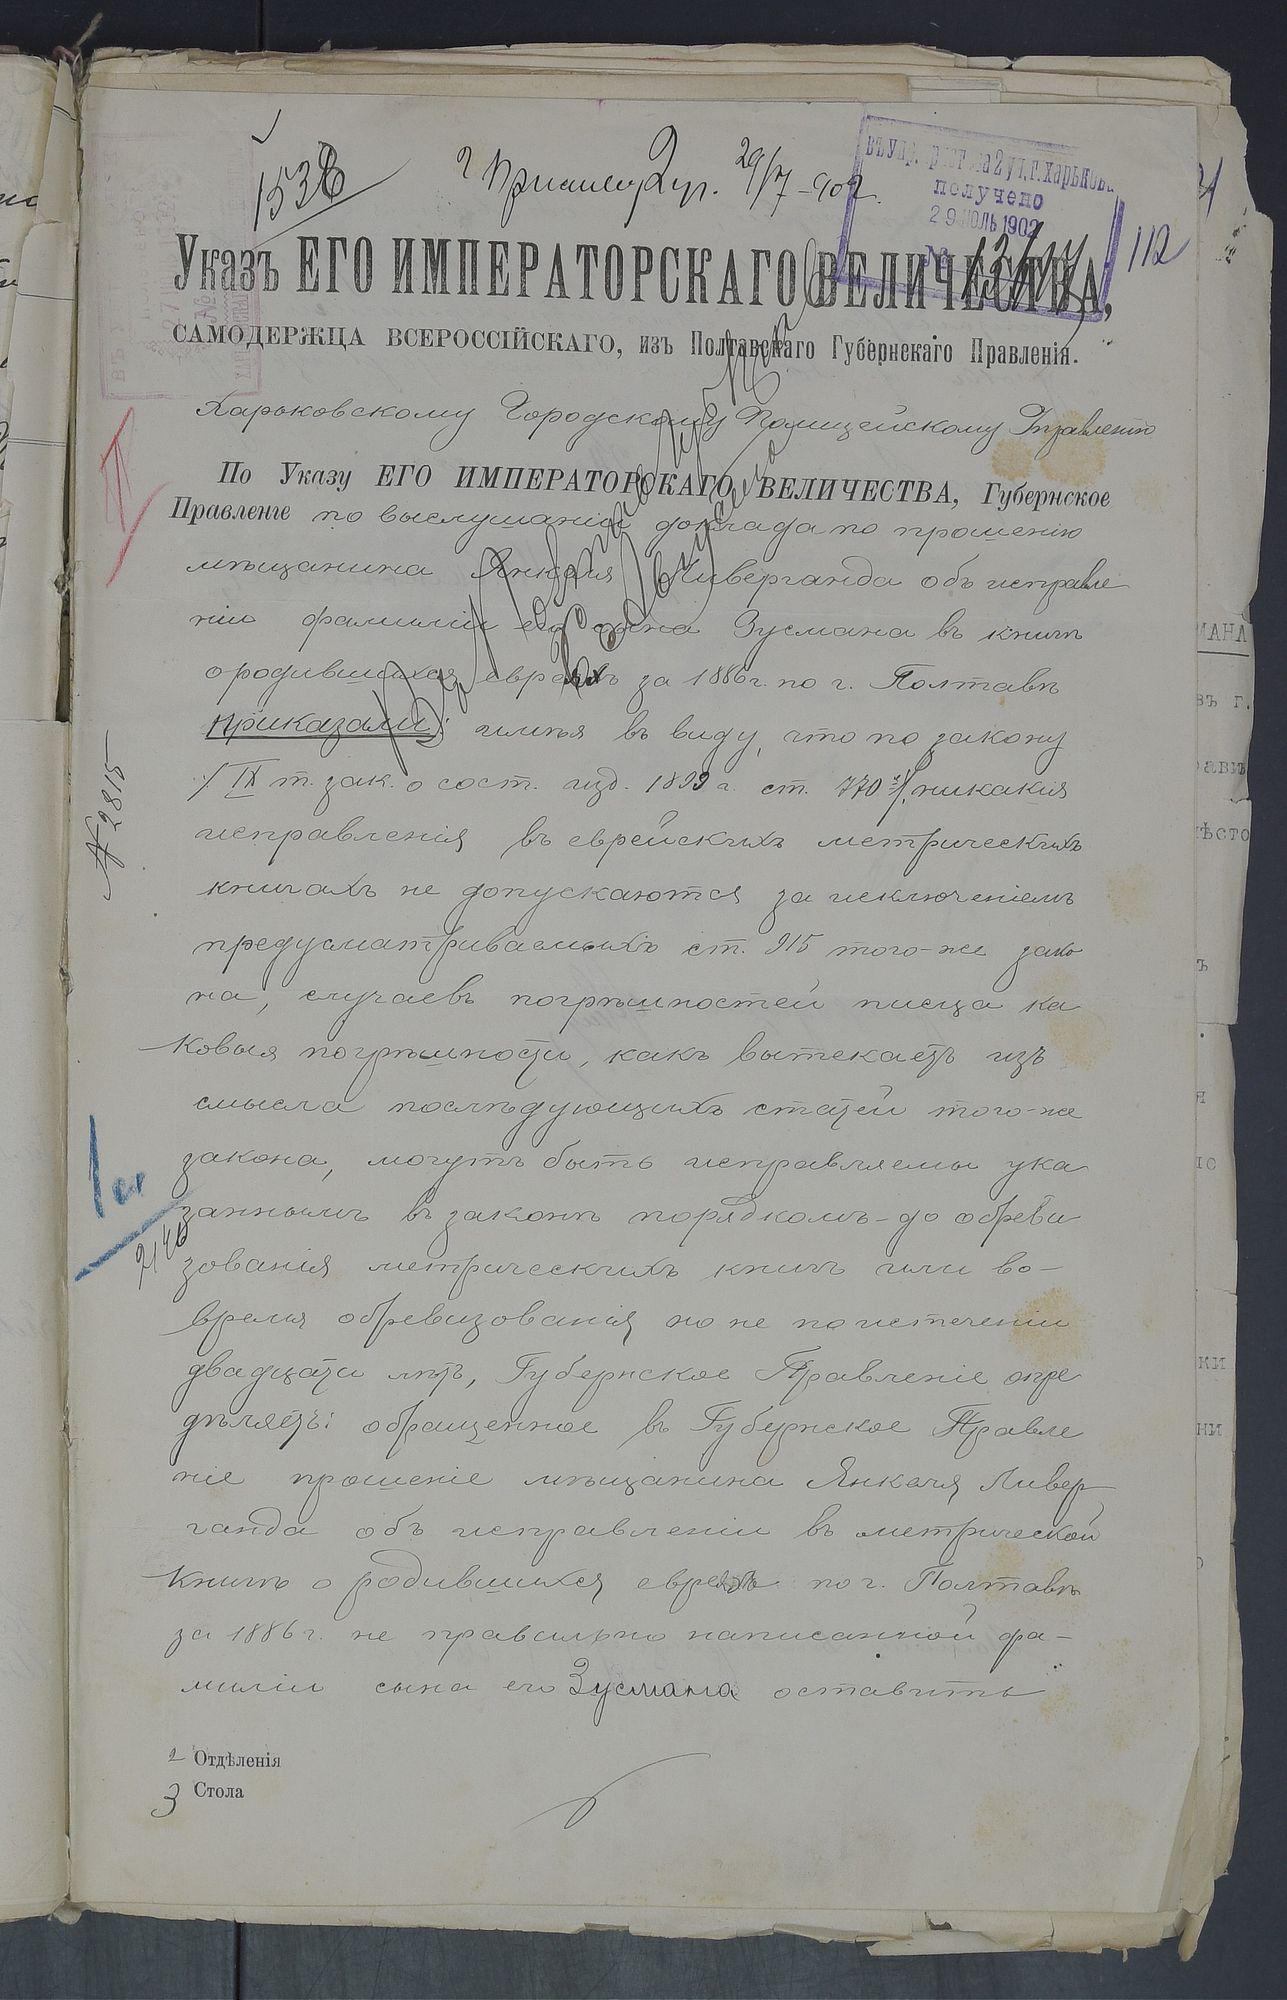 1538
г. Приставу 2 уч. 29/7-902.
Въ Упр. прист. на 2 уч. г. Харькова
получено
29 ІЮЛЬ 1902
№
112
Указъ ЕГО ИМПЕРАТОРСКАГО ВЕЛИЧЕСТВА,
САМОДЕРЖЦА ВСЕРОССІЙСКАГО, изъ Полтавскаго Губернскаго Правленія.
Харьковскому Городскому Полицейскому Управленію
По Указу ЕГО ИМПЕРАТОРСКАГО ВЕЛИЧЕСТВА, Губернское
Правленіе по выслушаніи доклада по прошенію
мѣщанина Янкеля Ливерганда объ исправле
ніи фамиліи его сына Зусмана въ книгѣ
о родившихся евреяхъ за 1886 г. по г. Полтавѣ
Приказали: имѣя въ виду, что по закону
/ IX т. зак. о сост. изд. 1899 г. ст. 770 /, никакія
исправленія въ еврейскихъ метрическихъ
книгахъ не допускаются за исключеніемъ
предусматриваемыхъ ст. 915 того-же зако
на, случаевъ погрѣшностей писца ка
ковыя погрѣшности, какъ вытекаетъ изъ
смысла послѣдующихъ статей того-же
закона, могутъ быть исправляемы ука
заннымъ въ законѣ порядкомъ - до обреви
зованія метрическихъ книгъ или во-
время обревизованія, но не по истеченіи
двадцати лѣтъ, Губернское Правленіе опре
дѣляетъ: обращенное въ Губернское Правле
ніе прошеніе мѣщанина Янкеля Ливер
ганда объ исправленіи въ метрической
книгѣ о родившихся евреяхъ по г. Полтавѣ
за 1886 г. не правильно написанной фа-
миліи сына его Зусмана оставить
№ 2815
2146
2 Отдѣленія
3 Стола